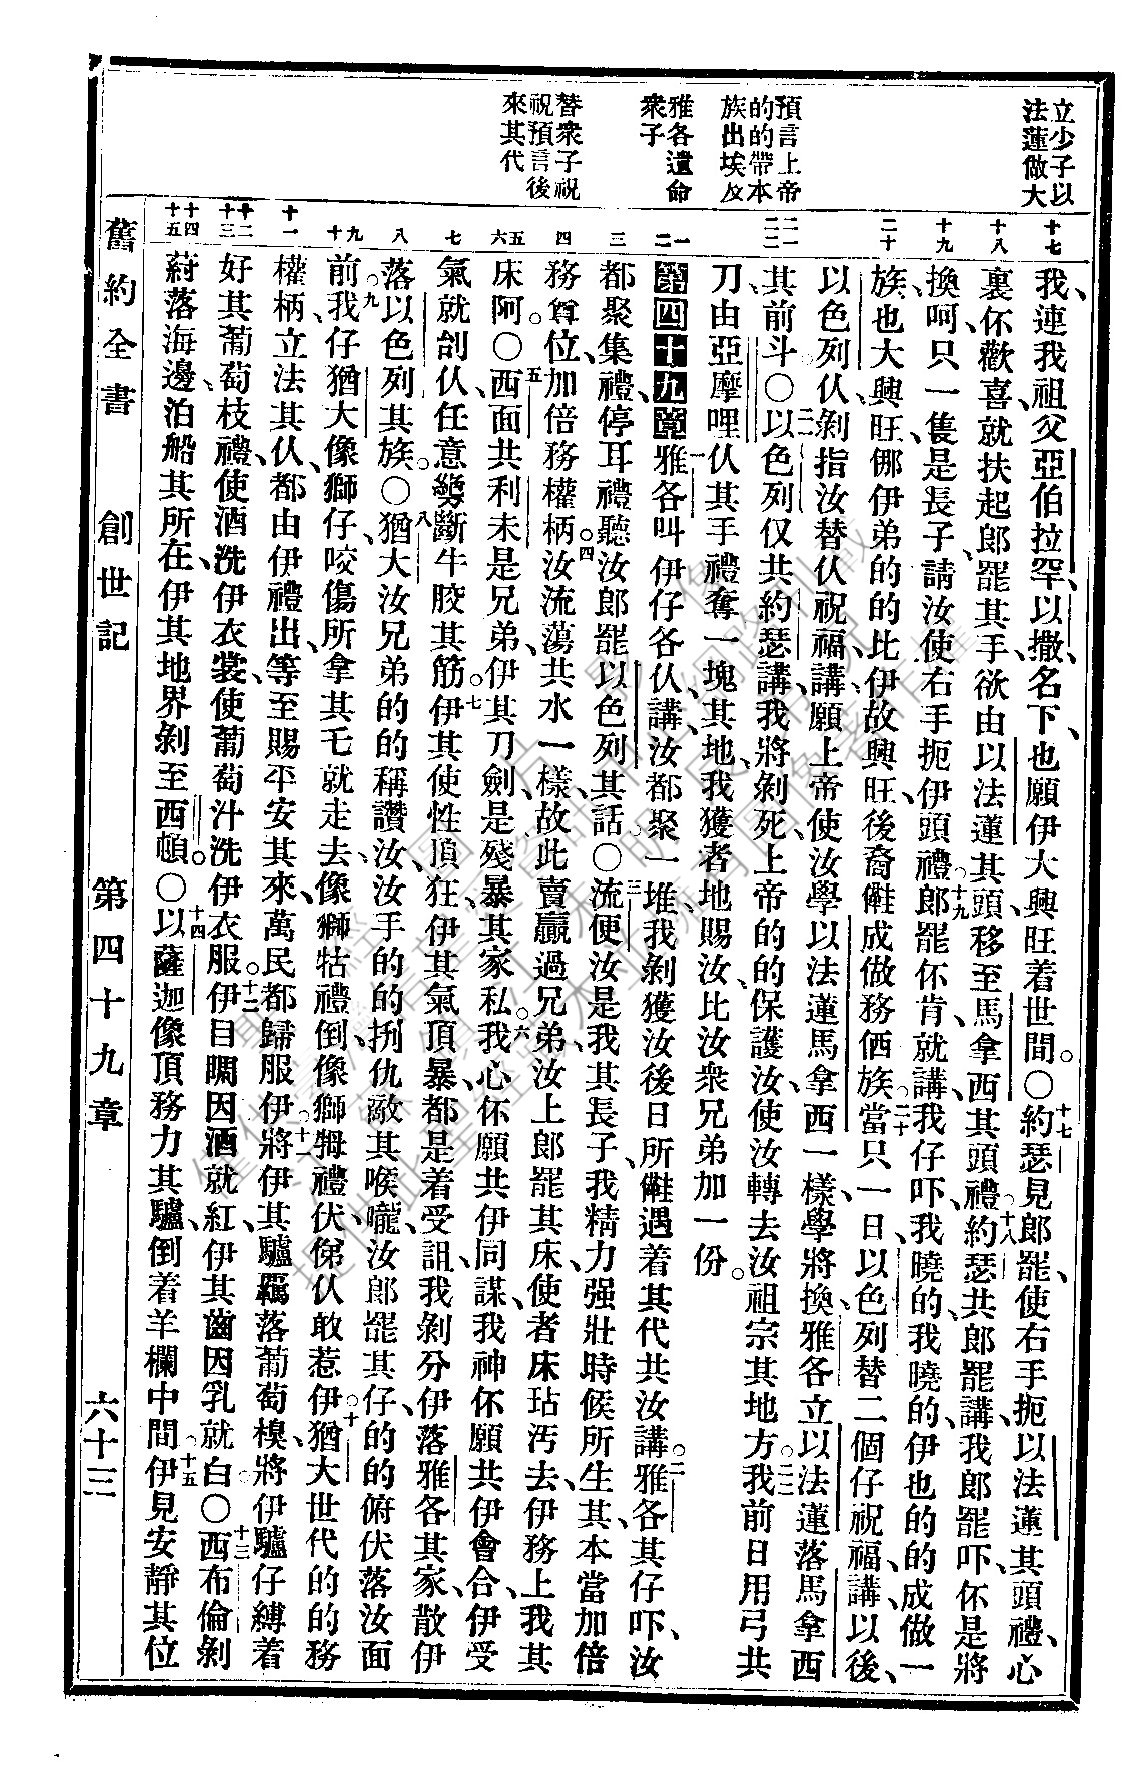 立少子以
法蓮做大
預言上帝
的的帶本
族出埃及
雅各遺命
衆子
替衆子祝
祝預言後
來其代
十七
十八
十九
二十
二一
二二
一
二
三
四
五
六
七
八
九
十
十一
十二
十三
十四
十五
我、連我祖父亞伯拉罕、以撒、名下、也願伊大興旺着世間。〇十七約瑟見郎罷、使右手扼以法蓮其頭禮、心
裏伓歡喜、就扶起郎罷其手、欲由以法蓮其頭、移至馬拿西其頭禮。十八約瑟共郎罷講、我郎罷吓、伓是將
換呵、只一隻是長子、請汝使右手扼伊頭禮。十九郎罷伓肯、就講、我仔吓、我曉的、我曉的、伊也的的成做一
族、也大興旺、㑚伊弟的的比伊故興旺、後裔㑔成做務㑚族。二十當只一日、以色列替二個仔祝福、講、以後、
以色列仈剝指汝替仈祝福、講、願上帝使汝學以法蓮馬拿西一樣、學將換、雅各立以法蓮落馬拿西
其前斗。〇二一以色列仅共約瑟講、我將剝死、上帝的的保護汝、使汝轉去汝祖宗其地方。二二我前日用弓共
刀、由亞摩哩仈其手禮奪一塊其地、我獲者地賜汝、比汝衆兄弟加一份。
第四十九章 一雅各叫伊仔各仈、講、汝都聚一堆、我剝獲汝後日所㑔遇着其代共汝講。二雅各其仔吓、汝
都聚集禮、停耳禮聽汝郎罷以色列其話。〇三流便汝是我其長子、我精力强壯時候所生其、本當加倍
務尊位、加倍務權柄。四汝流蕩共水一樣、故此賣贏過兄弟、汝上郎罷其床、使者床玷汚去、伊務上我其
床阿。〇五西面共利未是兄弟、伊其刀劍、是殘暴其家私。六我心伓願共伊同謀、我神伓願共伊會合、伊受
氣就刣仈、任意㔢斷牛胶其筋。七伊其使性頂狂、伊其氣頂暴、都是着受詛、我剝分伊落雅各其家、散伊
落以色列其族。〇八猶大汝兄弟的的稱讚汝、汝手的的捌仇敵其喉嚨、汝郎罷其仔的的俯伏落汝面
前。九我仔猶大像獅仔、咬傷所拿其乇就走去、像獅牯禮倒、像獅牳禮伏、俤仈敢惹伊。十猶大世代的的務
權柄、立法其仈、都由伊禮出、等至賜平安其來、萬民都歸服伊。十一將伊其驢羈落葡萄模、將伊驢仔縛着
好其葡萄枝禮、使酒洗伊衣裳、使葡萄汁洗伊衣服。十二伊目睭因酒就紅、伊其齒因乳就白。〇十三西布倫剝
蒔落海邊、泊船其所在、伊其地界剝至西頓。〇十四以薩迦像頂務力其驢、倒着羊欄中間。十五伊見安靜其位
舊約全書 創世記 第四十九章 六十三